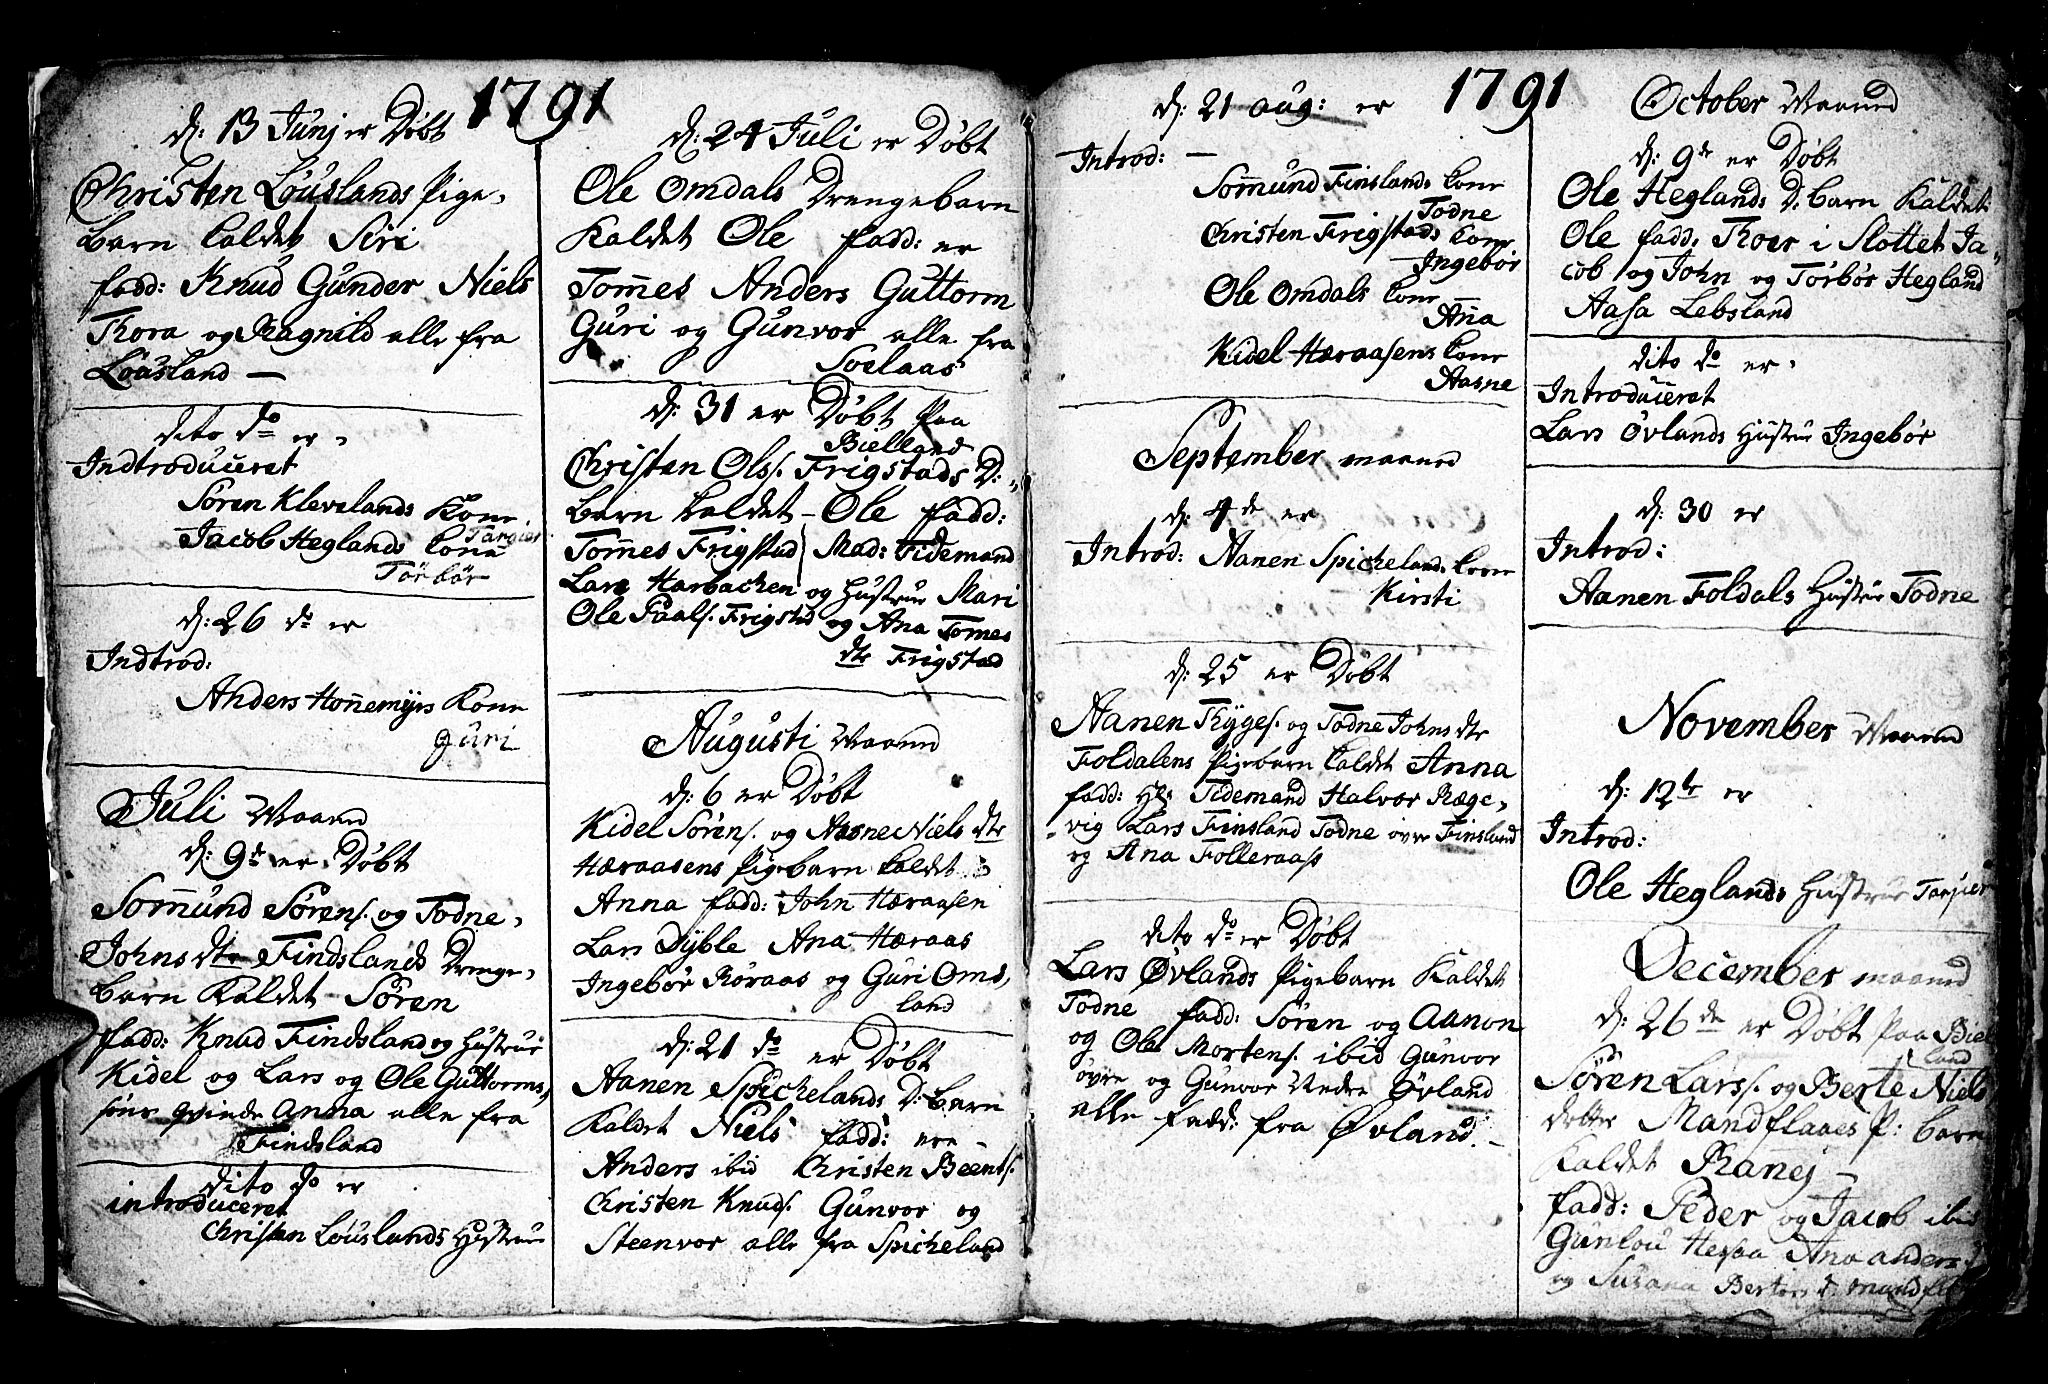 1791
d: 13 Junj er Døbt
Christen Løuslands Pige,
barn kaldet Siri
fadd: Knud Gunder Niels
Thora og Ragnild alle fra
Løusland —
dito do er,
Indtroduceret
Søren Klevelands Kone
Targier
Jacob Heglands kone
Torbør
d: 26 do er
Indtrod:
Anders Honnemyrs Kone
Guri
Juli Maaned
d: 9de er Døbt
Sommund Sørens. og Todne,
Johns dtr Findslands Drenge,
barn Kaldet Søren
fadd: Knud Findsland og Hustrue
Kidel og Lars og Ole Guttorms,
søns qvinde Anna alle fra
Findsland
dito do er
introduceret
Christen Løuslands Hustrue
d: 24 Juli er Døbt
Ole Omdals Drengebarn
Kaldet Ole fadd: er
Tommes Anders Guttorm
Guri og Gunvor alle fra
Soelaas
d: 31 er Døbt Paa
Bielland
Christen Olss. Frigstads D:
barn kaldet – Ole fadd:
Tommes Frigstad Mad: Tidemand
Lars Harbachen og Hustrue Mari
Ole Paals. Frigstad og Ana Tomes
dtr Frigstad
Augusti Maaned
d: 6 er Døbt
Kidel Sørens. og Aasne Niels dtr
Hæraasens Pigebarn kaldet
Anna fadd: John Hæraasen
Lars Dyble Ana Hæraas
Ingebør Røraas og Guri Oms,
land
d: 21 do er Døbt
Aanen Spichelands D: barn
kaldet Niels fadd: ere –
Anders ibid Christen Beents.
Christen Knuds. Gunvor og
Steenvor alle fra Spicheland
1791
d: 21 aug: er
Introd: —
Sommund Finslands kone
Todne
Christen Frigstads kone
Ingebør
Ole Omdals kone
Anna
Kidel Hæraasens kone
Aasne
September maaned
d: 4de er
Introd: Aanen Spichelands kone
Kirsti
d: 25 er Døbt
Aanen Tryges. og Todne Johns dtr
Foldalens Pigebarn kaldet Anna
fadd: Hr: Tidemand Halvor Ræge,
vig Lars Finsland Todne øvre Finsland
og Ana Folleraas
dito do er Døbt
Lars Øvlands Pigebarn Kaldet
Todne fadd: Søren og Aanon
og Ole Mortens. ibid Gunvor
øvre og Gunvor Nedre Øvland
alle fadd: fra Øvland. –
October Maaned
d: 9de er Døbt
Ole Heglands D: barn Kaldet
Ole fadd: Thoer i Slottet Ja,
cob og John og Torbør Hegland
Aasa Lebsland
dito do er,
Introduceret
Lars Øvlands Hustrue Ingebør
d: 30 er
Introd:
Aanen Foldals Hustrue Todne
November Maaned
d: 12te er
Introd:
Ole Heglands Hustrue Targier
December maaned
d: 26de er Døbt Paa Biel
land
Søren Larss. og Berte Niels
dotter Mandflaaes P: barn
kaldet Ranej –
fadd: Peder og Jacob ibid
Gunlou Hessaa Ana anders
og Susana Berthes d Mandfl